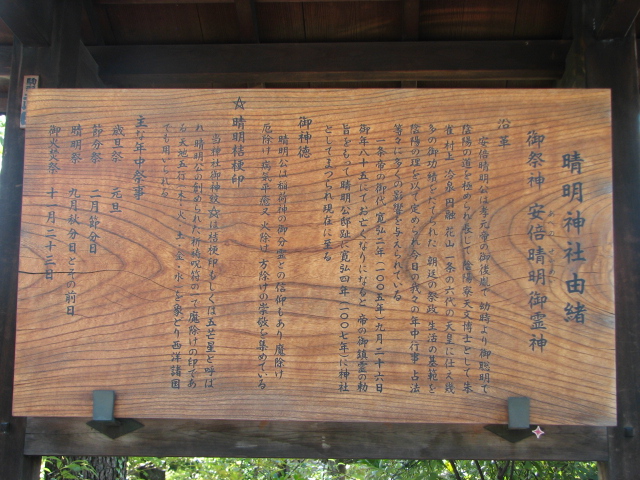 晴明神社由緒
御祭神 安倍晴明御霊神
あべの
沿革
安倍晴明公は孝元帝の御後胤で 幼時より御聡明で
陰陽の道を極められ 長じて陰陽家天文博士として 朱
雀 村上 冷泉 円融 花山 一条の六代の天皇に仕え 幾
多の功績をたてられた 朝廷の祭政 生活の基範を
陰陽の理を以って定められ 今日の我々の年中行事 占法
等々に多くの影響を与えられている
一条帝の御代 寛弘二年(一〇〇五年)九月二十六日
御年八十五にてお亡くなりになるや 帝の御鎮霊の勅
旨をもって 晴明公邸趾に寛弘四年(一〇〇七年)に神社
としてまつられ現在に至る
御神徳
晴明公は稲荷神の御分霊との信仰もあり 魔除け
厄除け 病気平癒 又 火除け 方除けの崇敬を集めている
☆晴明桔梗印
当神社の御神紋は桔梗印もしくは五芒星と呼ば
れ 晴明公の創められた祈祷呪符の一て魔除けの印であ
る 天地五行(木・火・土・金・水)を象どり西洋諸国
でも用いられる
主な年中祭事
歳旦祭 元旦
節分祭 二月節分日
晴明祭 九月秋分日とその前日
御火焚祭 十一月二十三日